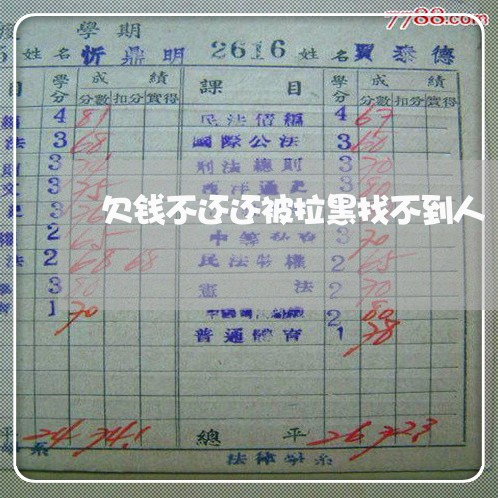 7788.com
學期
姓名忻鼎明 2616 姓名賈泰德
目 學分 成績 課目 學分 成績
分數 扣分 實得 分數 扣分 實得
4 81 民法債編 4 67
法 3 68 國際公法 3 60
3 刑法總則 3 70
3 75 西洋通史 3 80
欠钱不还还被拉黑找不到人
2 65 3 70
法 2 68 68 民法物權 2 65
3 80 憲法 2 70
1 70 2 80
普通體育 1 78
平 24 74.1 總平 26 72.3
系 法律學系